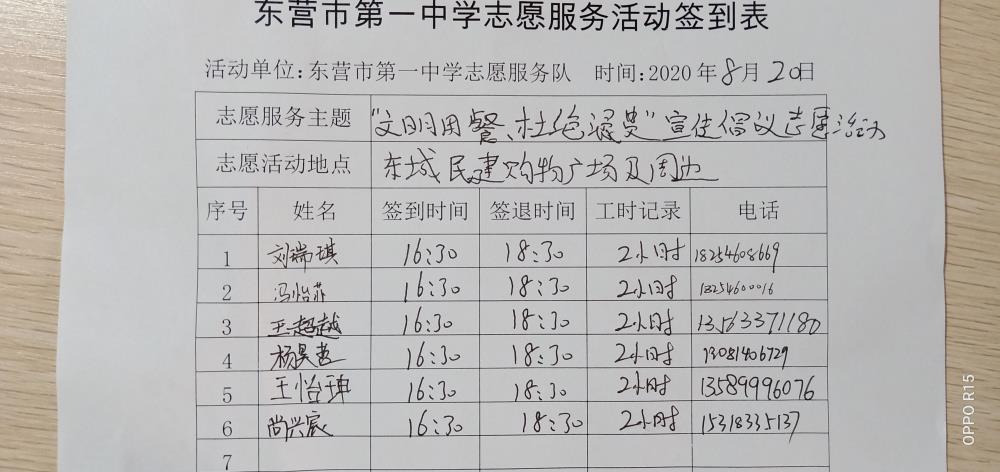 东营市第一中学志愿服务活动签到表
活动单位:东营市第一中学志愿服务队 时间:2020年8月20日
志愿服务主题 "文明用餐、杜绝浪费"宣传倡议志愿活动
志愿活动地点 东城民建购物广场及周边
序号 姓名 签到时间 签退时间 工时记录 电话
1 刘瑞琪 16:30 18:30 2小时 18254608669
2 冯怡菲 16:30 18:30 2小时 18254600016
3 王超越 16:30 18:30 2小时 13563371180
4 杨昊 16:30 18:30 2小时 13081406729
5 王怡 16:30 18:30 2小时 13589996076
6 尚兴宸 16:30 18:30 2小时 15318335137
7
OPPO R15